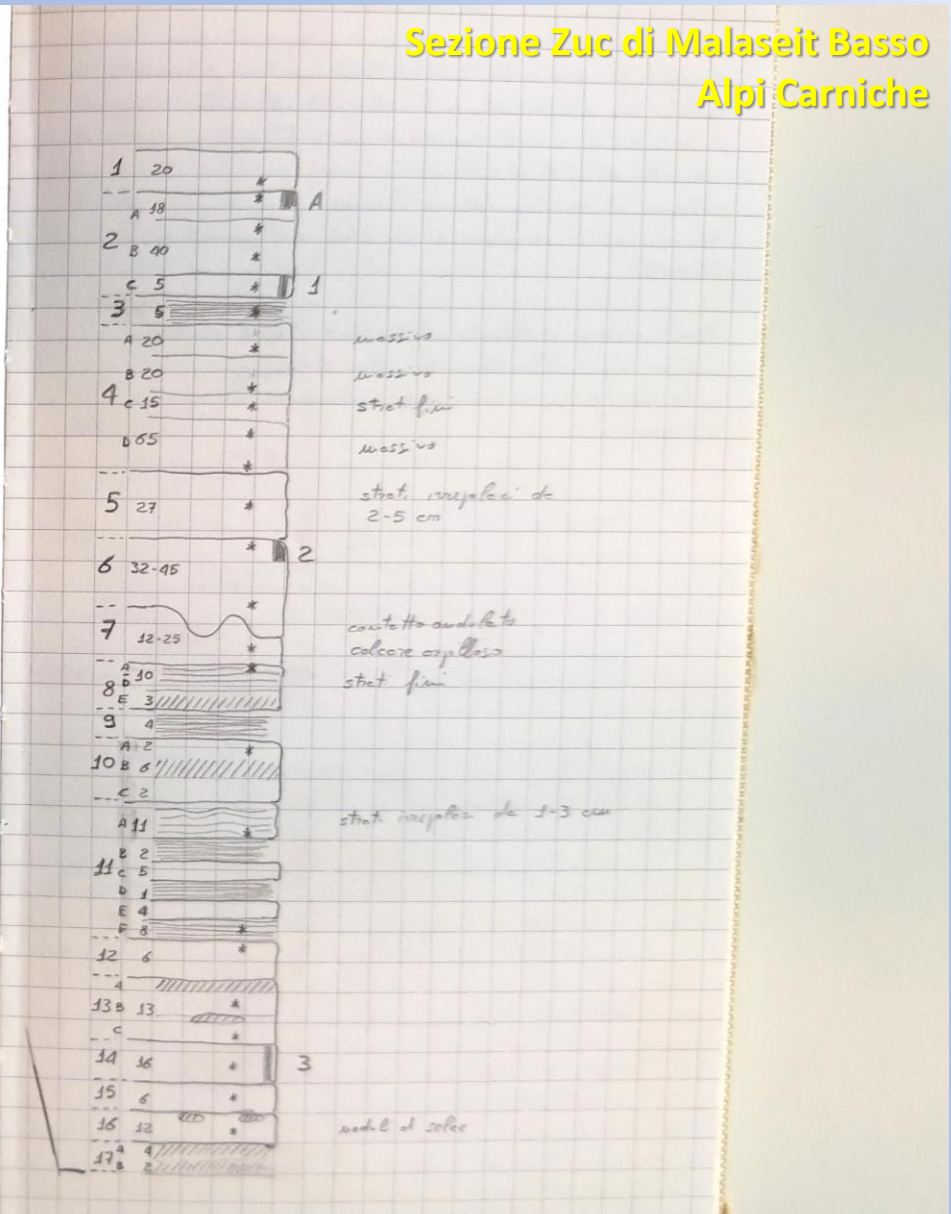 Sezione Zuc di Malaseit Basso
Alpi Carniche
1 20 *
A 18 * A
2 *
B 40 *
C 5 * 1
3 5 *
A 20 * massivo
B 20 massivo
*
4 C 15 * strat fini
D 65 * massivo
*
5 27 * strat. irregolari da
2-5 cm
* 2
6 32-45
*
7 12-25 contatto ondulato
* calcare argilloso
A *
8 D 10 strat fini
E 3
9 4
A 2 *
10 B 6
C 2
A 11 * strat. irregolari da 1-3 cm
B 2
11 C 5
D 1
E 4
F 8 *
12 6 *
A
13 B 13 *
C *
14 16 * 3
15 6 *
16 12 * noduli di selce
17 A 4
B 2